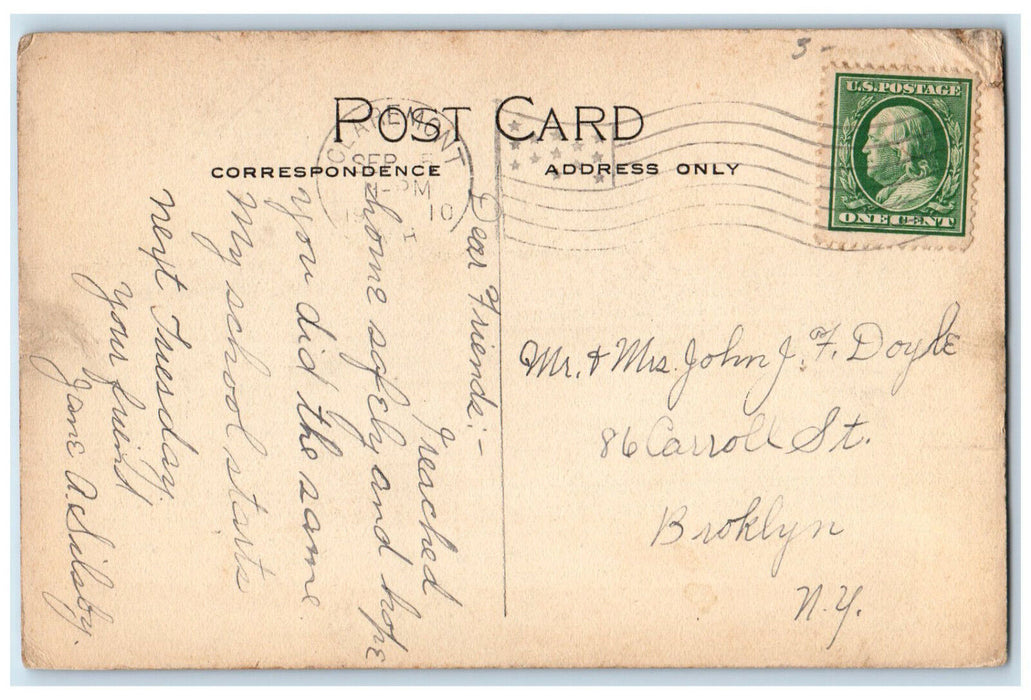 3-
POST CARD
CORRESPONDENCE
ADDRESS ONLY
CLAREMONT
SEP 5
-PM
19 10
U.S. POSTAGE
ONE CENT
Dear Friends:-
I reached
home safely and hope
you did the same.
My school starts
next Tuesday.
Your friend
Jane A. Silsby.
Mr. & Mrs. John J. F. Doyle
86 Carroll St.
Broklyn
N.Y.